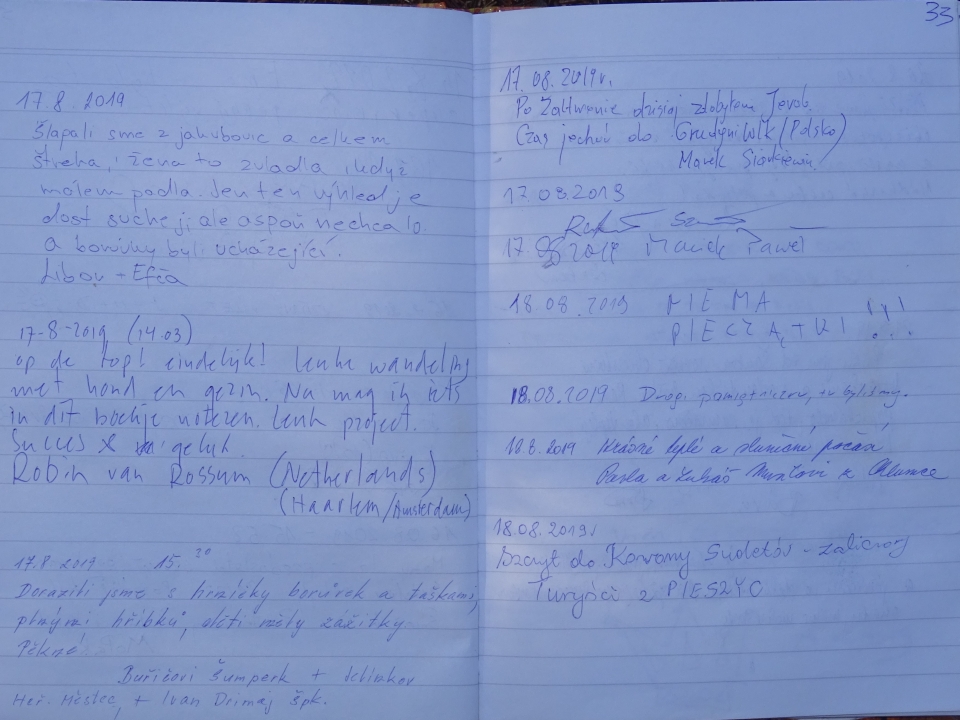 17.8. 2019
Šlapali sme z jakubovic a celkem
štreka, žena to zvladla ikdyž
málem padla. Jen ten výhled je
dost suchej, ale aspoň nechcalo.
a borůvky byli ucházející.
Libor + Efča
17-8-2019 (14.03)
op de top! eindelijk! Leuke wandeling
met hond en gezin. Nu mag ik iets
in dit boekje noteren. Leuk project.
Succes & geluk.
Robin van Rossum (Netherlands)
(Haarlem/Amsterdam)
17.8 2019 15.20
Dorazili jsme s hrníčky borůvek a taškami
plnými hříbků, děti měly zážitky
Pěkné
Buřičovi Šumperk +
Heř. Městec, + Ivan Drimaj Špk.
33
17.08.2019r.
Po dzisiaj zdobyłem
Czas jechać do (Polska)
Marek
17.08.2019
17.08 2019 Maciek Paweł
18.08.2019 NIE MA
PIECZĄTKI !!!
18.08.2019 Drogi pamiętniczku, tu byliśmy.
18.8.2019 Krásné teplé a slunečné počasí
Pavla a Lukáš z Chlumce
18.08.2019r
Szczyt do Korony Sudetów - zaliczony
Turyści z PIESZYC